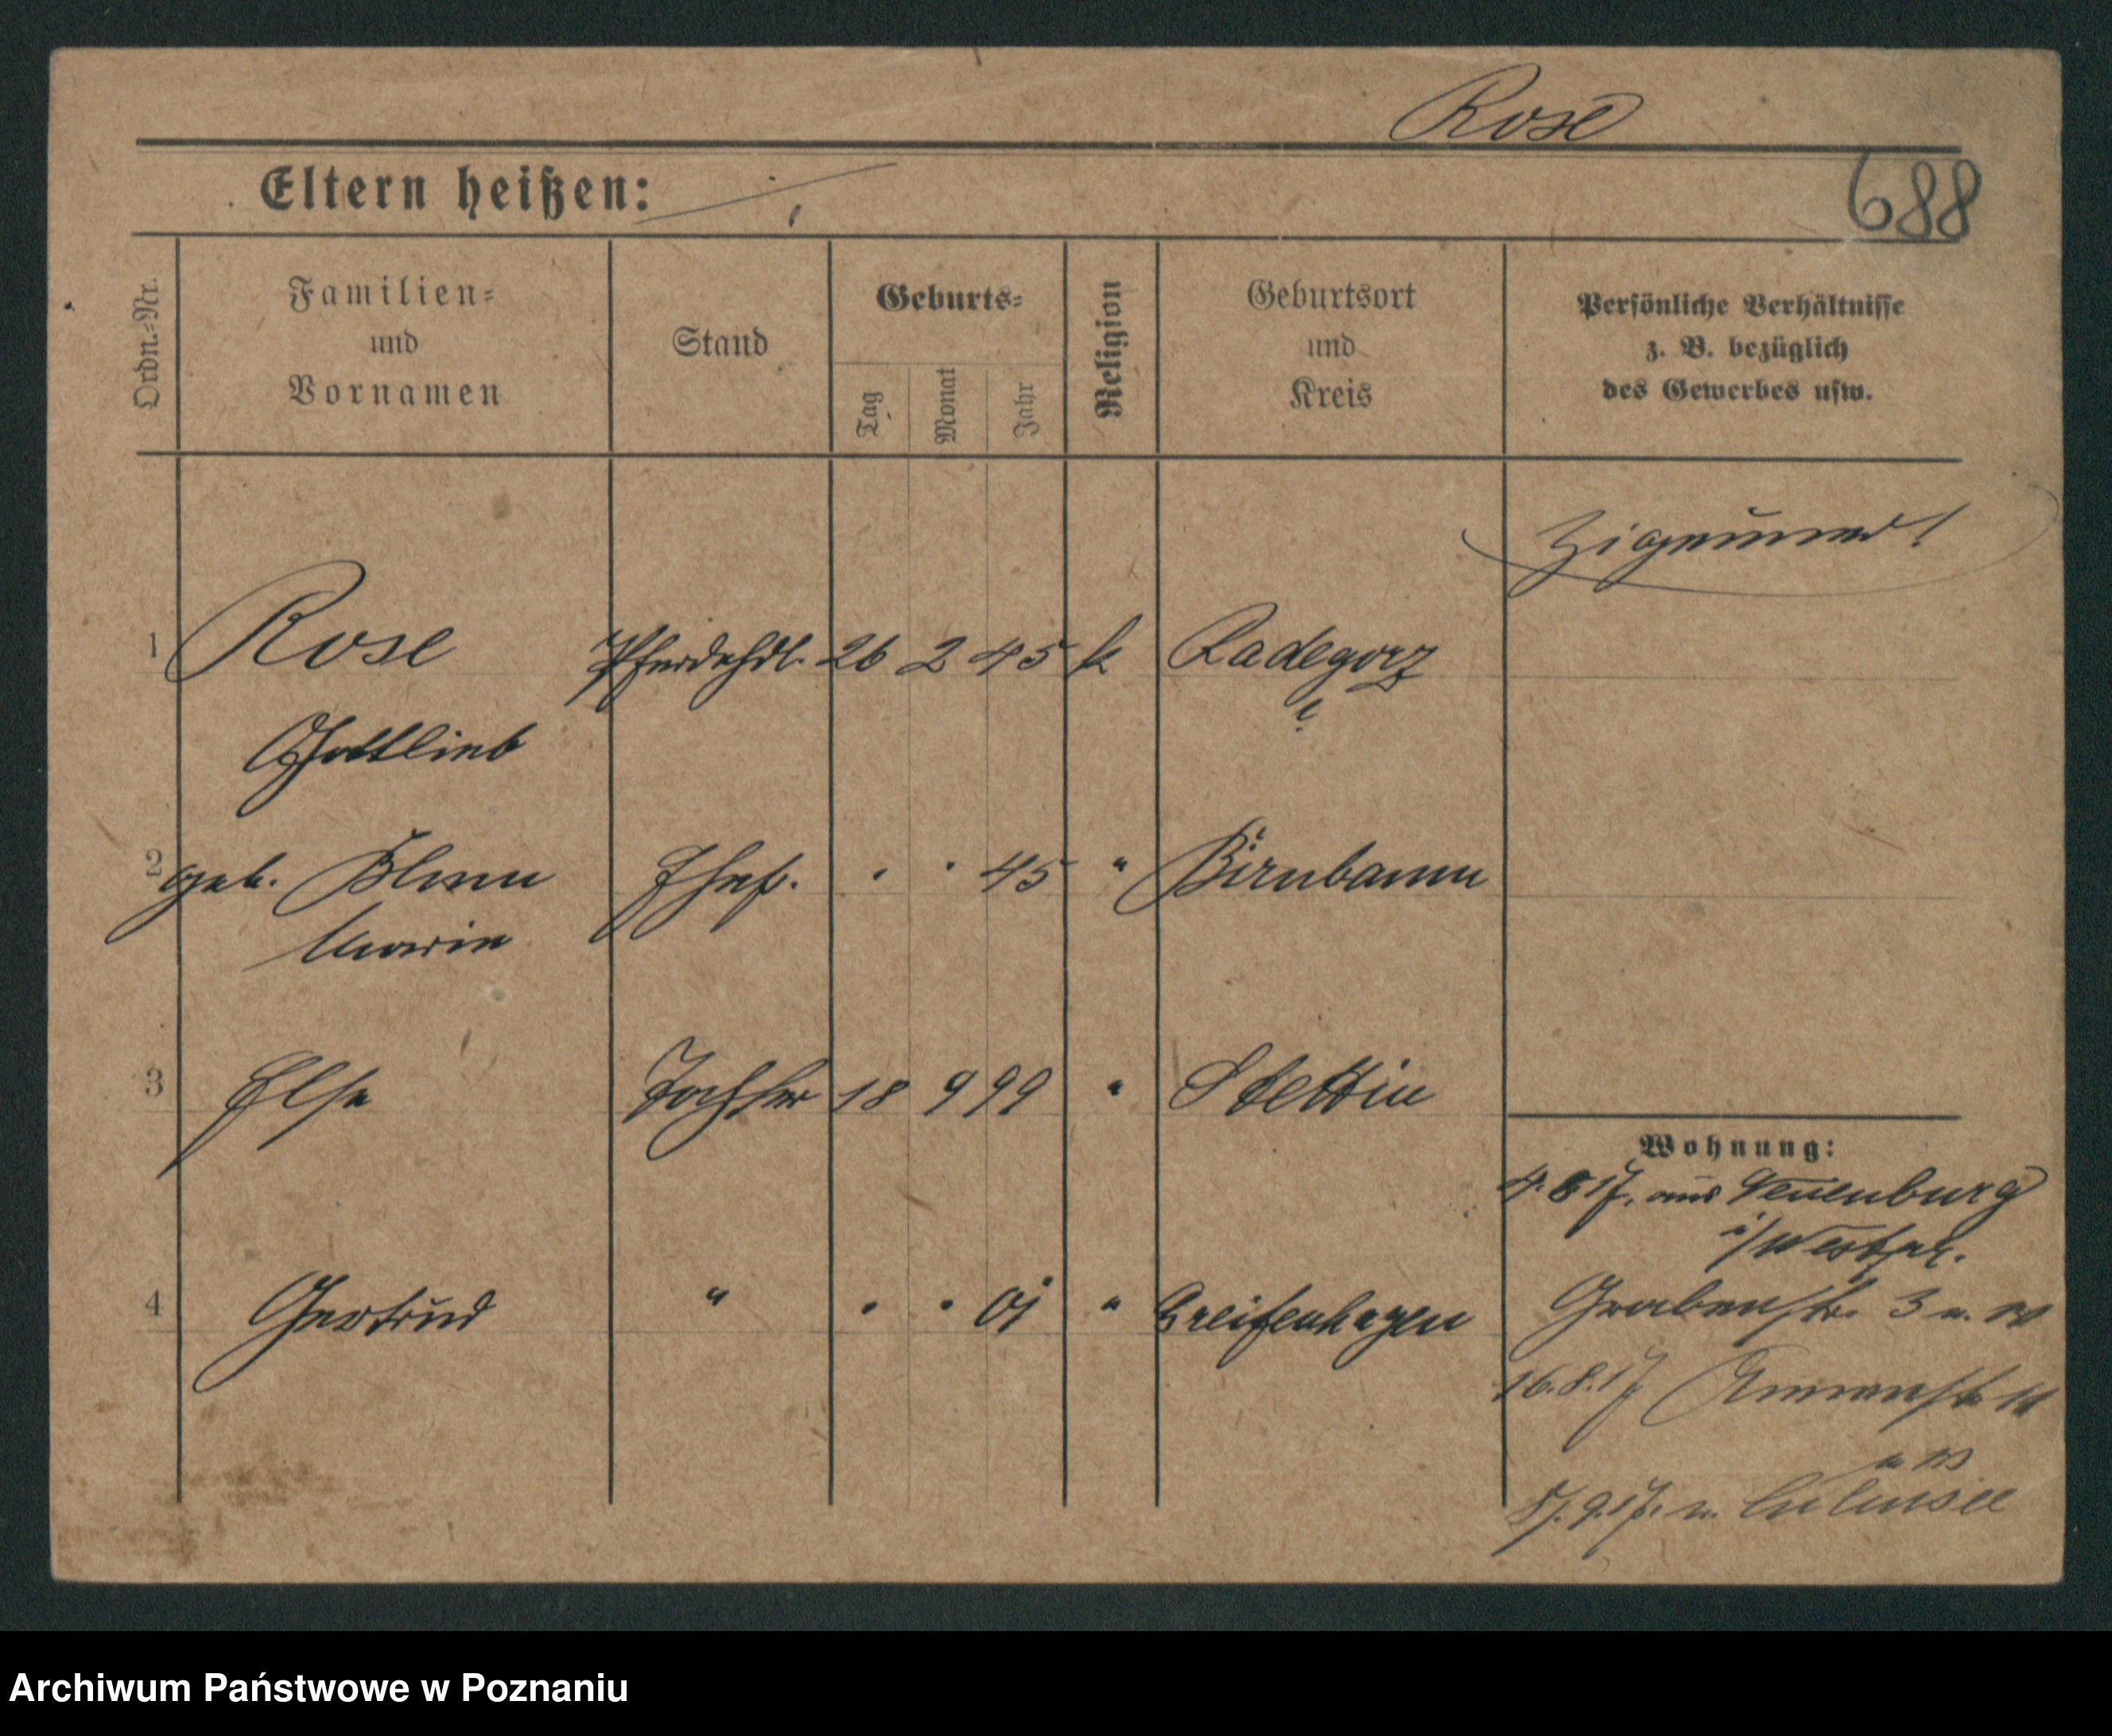 Rose
688
Eltern heißen:
Ordn.-Nr.
Familien-
und
Vornamen
Stand
Geburts-
Tag
Monat
Jahr
Religion
Geburtsort
und
Kreis
Persönliche Verhältnisse
z. B. bezüglich
des Gewerbes usw.
Zigeuner!
1 Rose Pferdehdl. 26 2 45 k Radegosz
Gottlieb
2 geb. Blum Ehefr. " " 45 " Birnbaum
Marie
3 Else Tochter 18 9 99 " Stettin
Wohnung:
4.8.17. aus Neuenburg
i/Westpr.
4 Gertrud " " " 01 " Greifenhagen
Grabenstr. 3 a. W
16.8.17
17.9.17. n. Culmsee
Archiwum Państwowe w Poznaniu